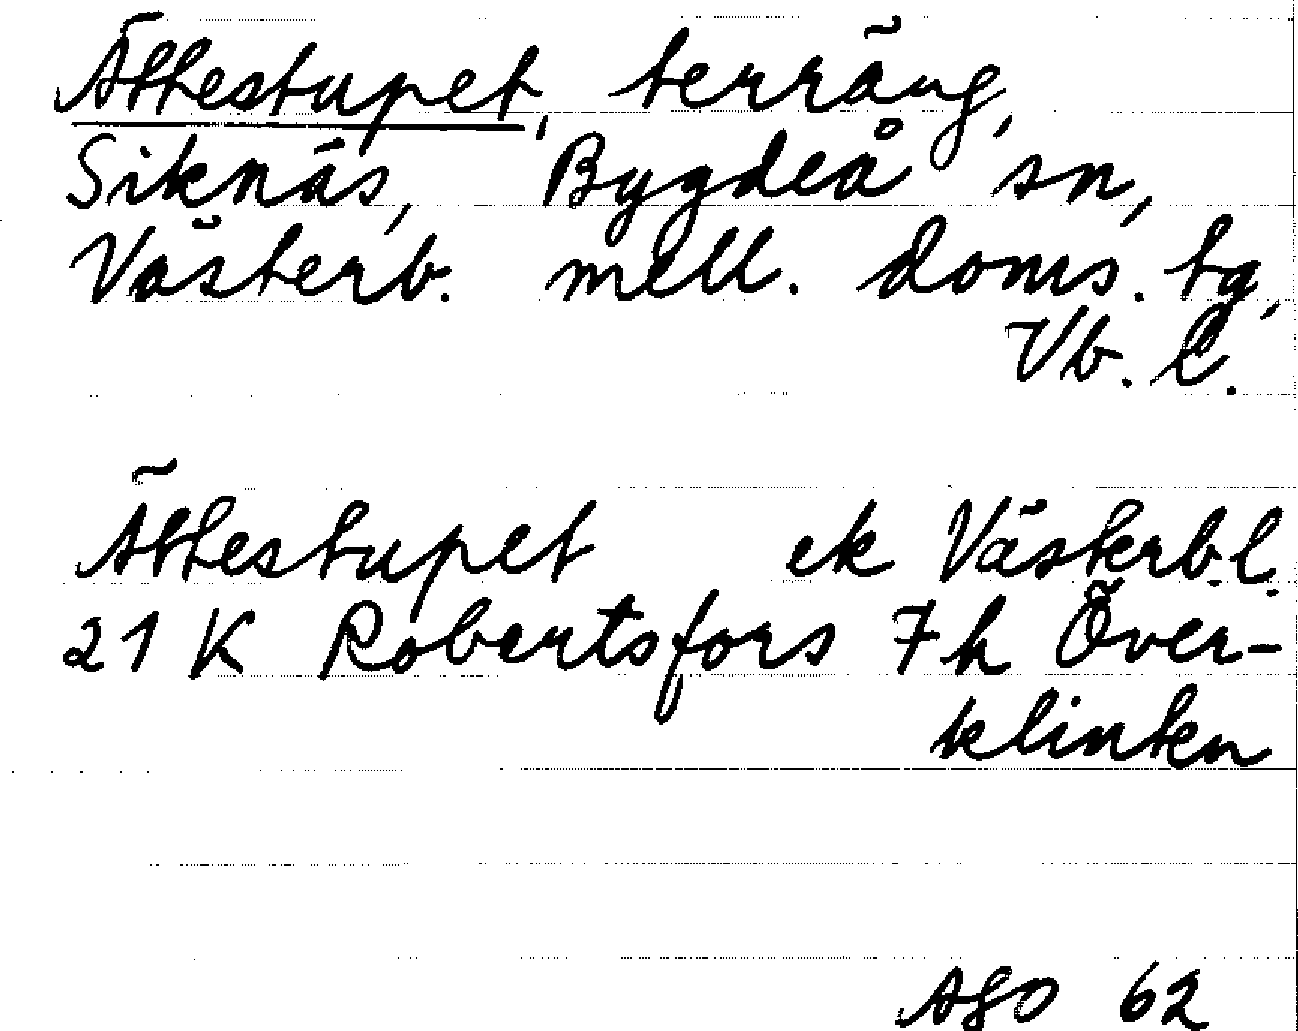 Ättestupet, terräng,
Siknäs, Bygdeå sn,
Västerb. mell. doms. tg,
Vb. l.
Ättestupet ek Västerb. l.
21 K Robertsfors 7 h Över-
klinten
AGO 62